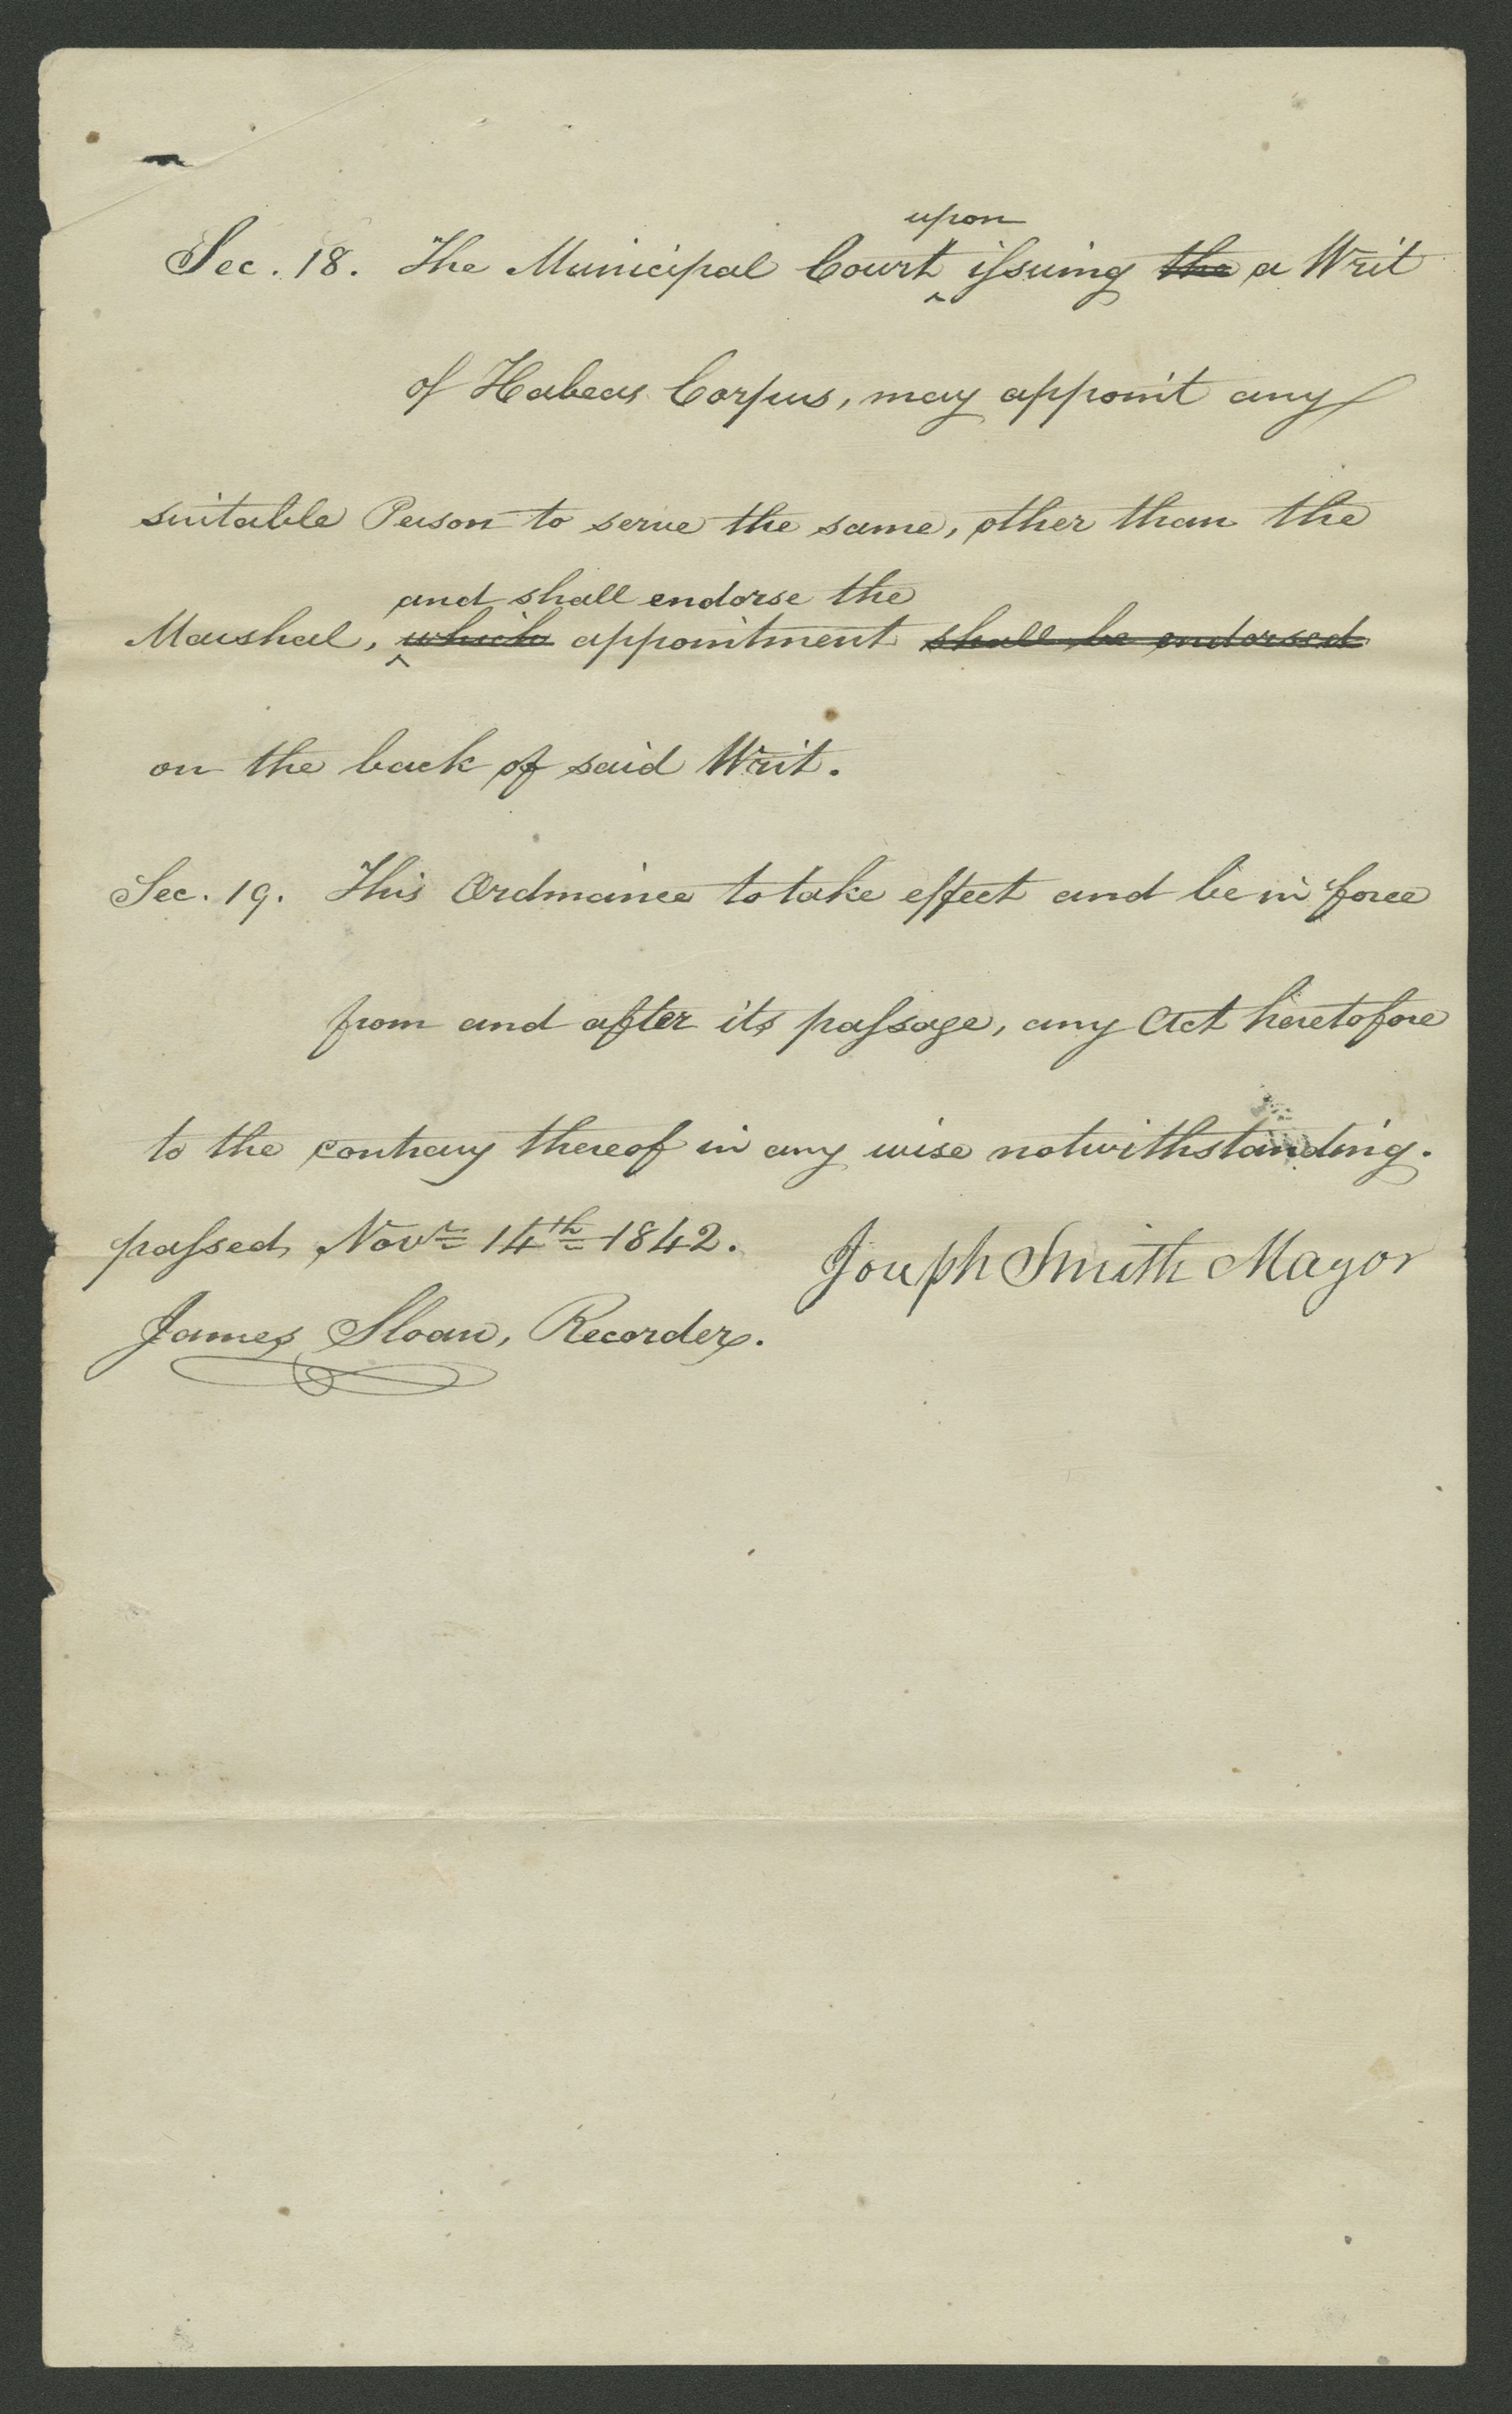 upon
Sec. 18. The Municipal Court ^ issuing the a Writ
of Habeas Corpus, may appoint any
suitable Person to serve the same, other than the
and shall endorse the
Marshal, ^ which appointment shall be endorsed
on the back of said Writ.
Sec. 19. This Ordinance to take effect and be in force
from and after its passage, any Act heretofore
to the contrary thereof in any wise notwithstanding.
passed, Novr 14th 1842.
Joseph Smith Mayor
James Sloan, Recorder.